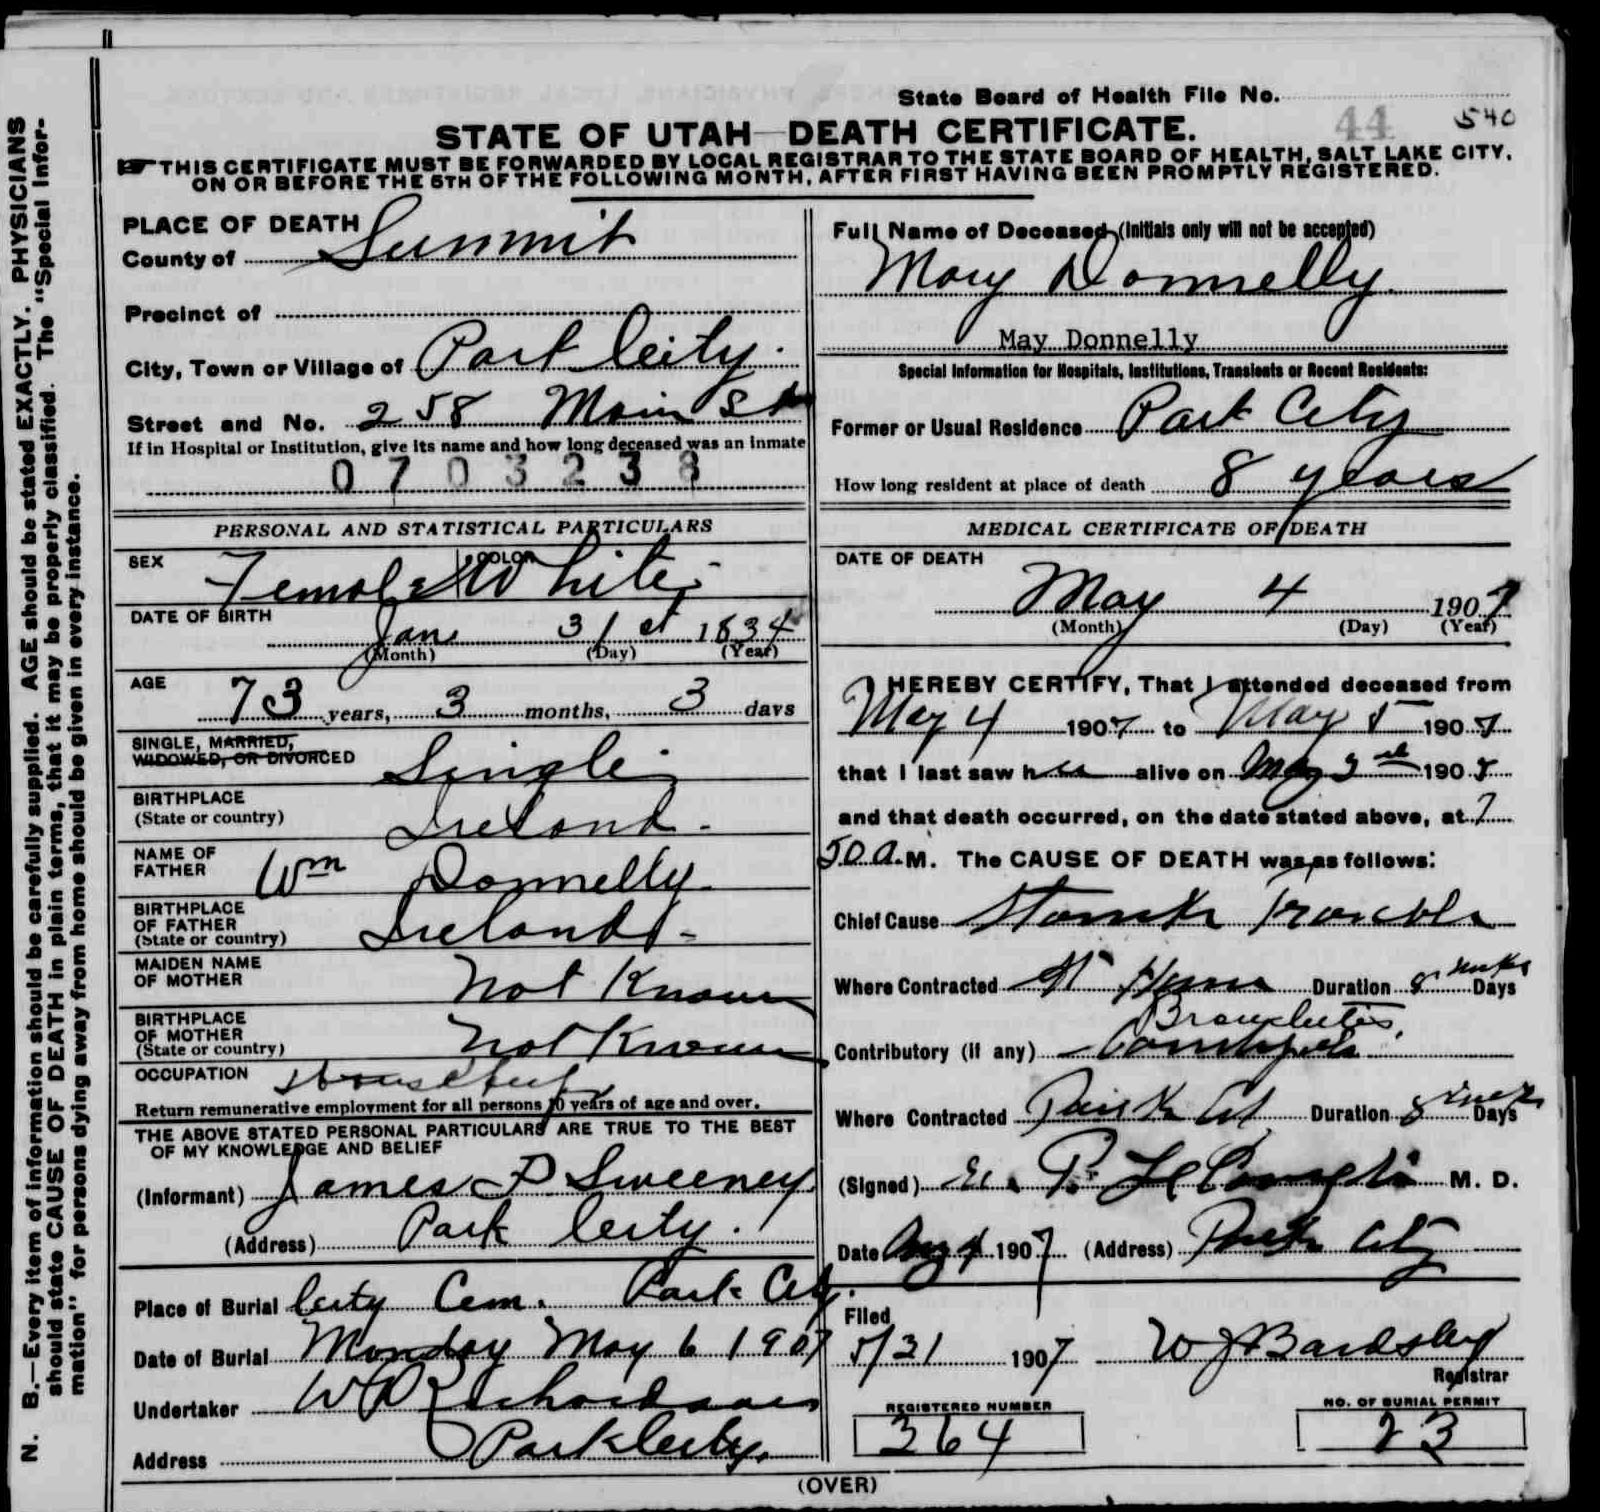 N. B.—Every item of information should be carefully supplied. AGE should be stated EXACTLY. PHYSICIANS
should state CAUSE OF DEATH in plain terms, that it may be properly classified. The "Special Infor-
mation" for persons dying away from home should be given in every instance.
State Board of Health File No. 44 540
STATE OF UTAH—DEATH CERTIFICATE.
THIS CERTIFICATE MUST BE FORWARDED BY LOCAL REGISTRAR TO THE STATE BOARD OF HEALTH, SALT LAKE CITY,
ON OR BEFORE THE 5TH OF THE FOLLOWING MONTH, AFTER FIRST HAVING BEEN PROMPTLY REGISTERED.
PLACE OF DEATH
County of Summit
Precinct of
City, Town or Village of Park City.
Street and No. 258 Main St
If in Hospital or Institution, give its name and how long deceased was an inmate
0703238
PERSONAL AND STATISTICAL PARTICULARS
SEX Female COLOR White
DATE OF BIRTH Jan 31 st 1834
(Month) (Day) (Year)
AGE 73 years, 3 months, 3 days
SINGLE, MARRIED,
WIDOWED, OR DIVORCED Single
BIRTHPLACE
(State or country) Ireland
NAME OF
FATHER Wm Donnelly
BIRTHPLACE
OF FATHER
(State or country) Ireland
MAIDEN NAME
OF MOTHER not Known
BIRTHPLACE
OF MOTHER
(State or country) not Known
OCCUPATION
Return remunerative employment for all persons 10 years of age and over.
THE ABOVE STATED PERSONAL PARTICULARS ARE TRUE TO THE BEST
OF MY KNOWLEDGE AND BELIEF
(Informant) James P Sweeney
(Address) Park City.
Place of Burial City Cem. Park City.
Date of Burial Monday May 6 1907
Undertaker W D Richardson
Address Park City.
Full Name of Deceased (Initials only will not be accepted)
Mary Donnelly.
May Donnelly
Special Information for Hospitals, Institutions, Transients or Recent Residents:
Former or Usual Residence Park City
How long resident at place of death 8 years
MEDICAL CERTIFICATE OF DEATH
DATE OF DEATH
May 4 1907
(Month) (Day) (Year)
I HEREBY CERTIFY, That I attended deceased from
May 4 1907 to May 5 1907
that I last saw her alive on May 190
and that death occurred, on the date stated above, at 7
50 a. M. The CAUSE OF DEATH was as follows:
Chief Cause Stomach trouble
Where Contracted At Home Duration 8 weeks Days
Bronchitis
Contributory (if any)
Where Contracted Park City Duration 8 weeks Days
(Signed) E. P. Le Compte M. D.
Date May 4 1907 (Address) Park City
Filed
5/31 1907 W J Bardsley
Registrar
REGISTERED NUMBER
364
NO. OF BURIAL PERMIT
23
(OVER)